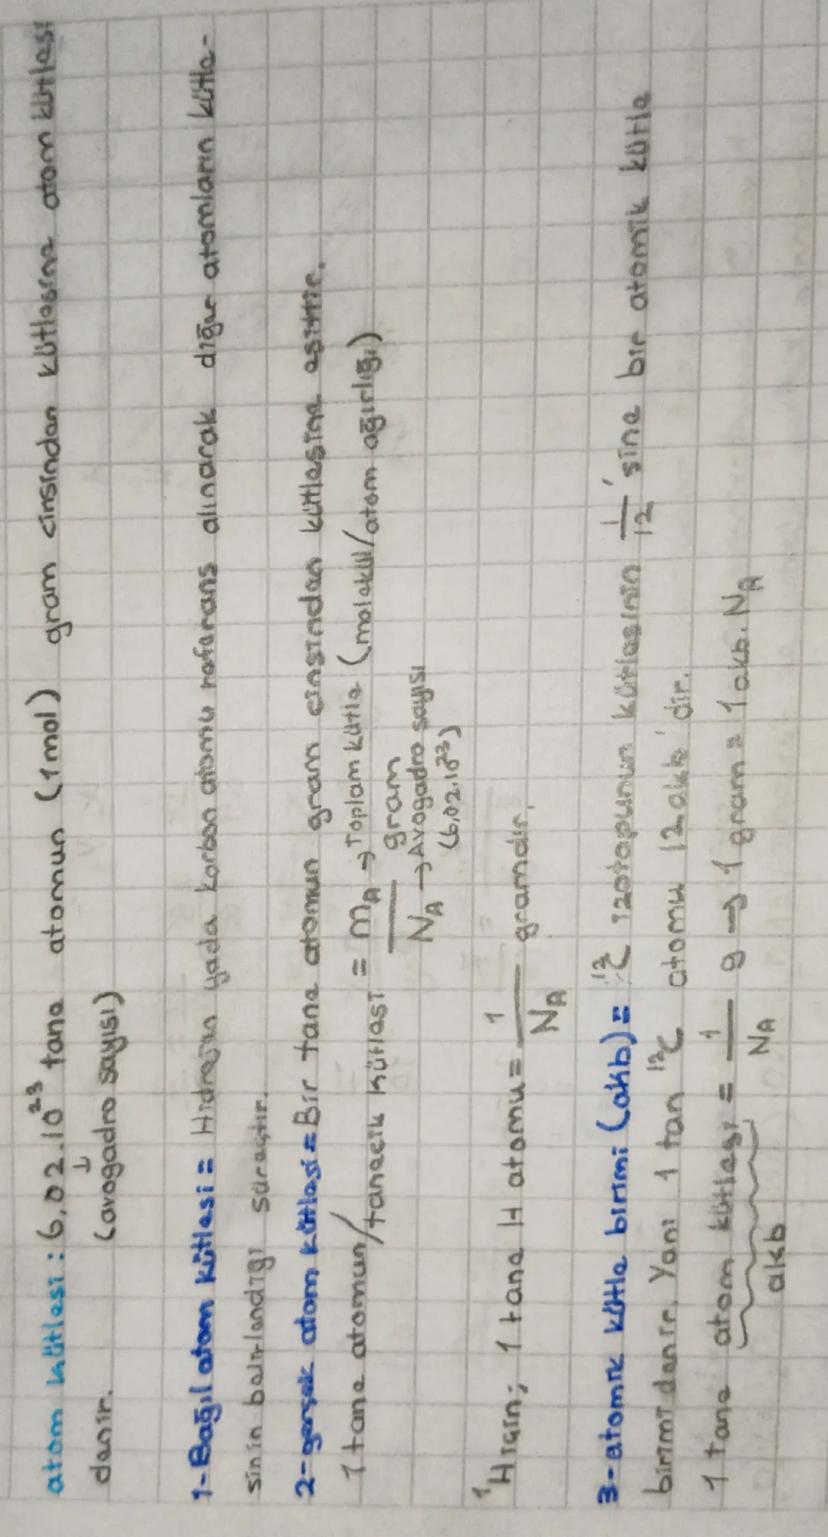 atom kütlesi : 6,02.10²³ tane atomun (1mol) gram cinsinden kütlesine atom kütlesi
↓
(avogadro sayısı)
denir.
1-Bağıl atom kütlesi = Hidrojen yada karbon atomu referans alınarak diğer atomların kütle-
sinin belirlendiği süreçtir.
2-gerçek atom kütlesi = Bir tane atomun gram cinsinden kütlesine eşittir.
1 tane atomun/tanecik kütlesi = mA → Toplam kütle (molekül/atom ağırlığı)
gram
NA → Avogadro sayısı
(6,02.10²³)
¹H için; 1 tane H atomu = 1/NA gramdır.
3-atomik kütle birimi (akb) = ¹²C izotopunun kütlesinin 1/12'sine bir atomik kütle
birimi denir. Yani 1 tan ¹²C atomu 12akb'dir.
1 tane atom kütlesi = 1/NA g → 1 gram = 1akb.NA
akb